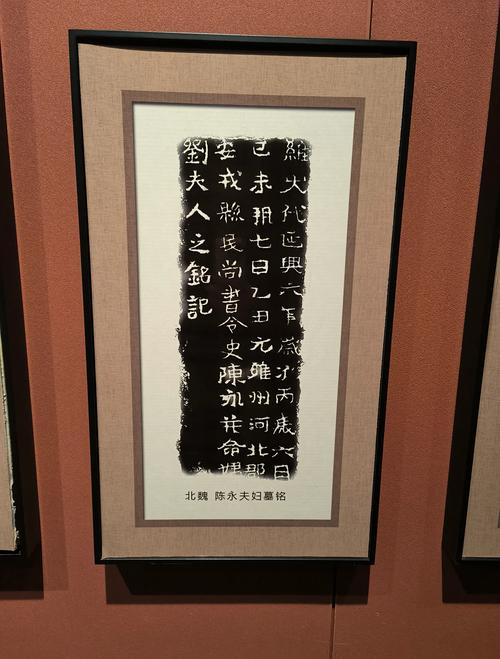 維大代延興六年歲次丙辰六月
己未朔七日乙丑元雍州河北郡
安戎縣民尚書令史陳永并命婦
劉夫人之銘記
北魏 陈永夫妇墓铭